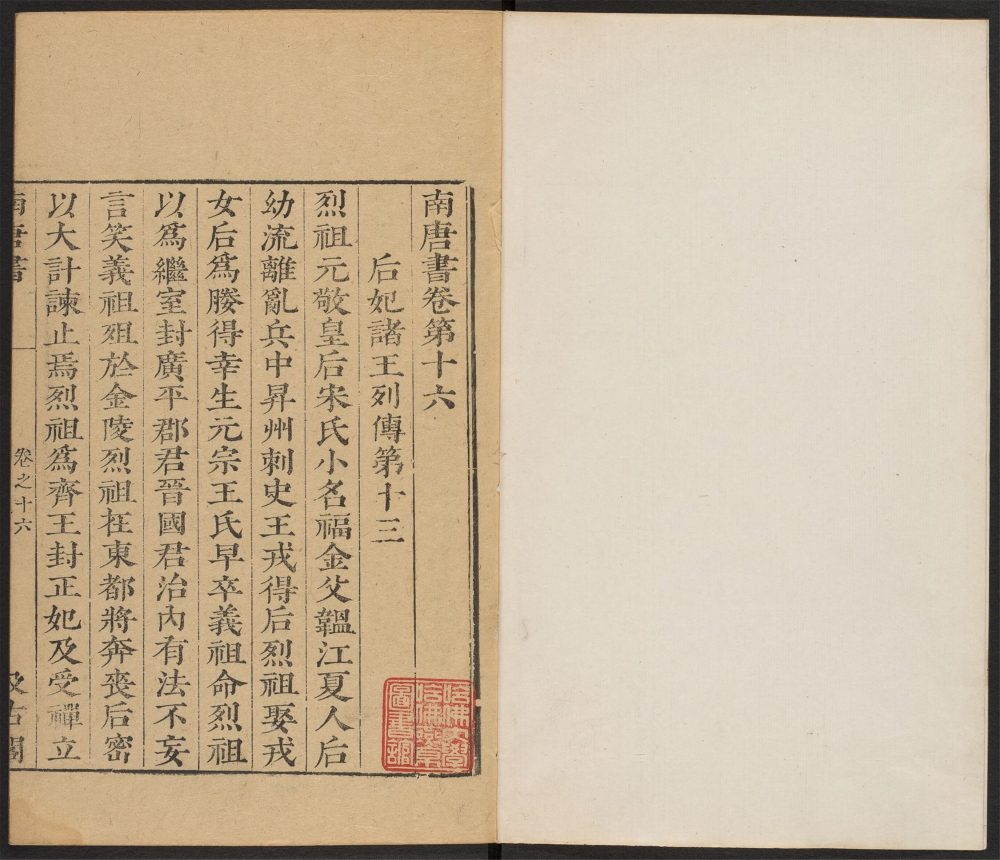 南唐書卷第十六
后妃諸王列傳第十三
烈祖元敬皇后宋氏小名福金父韞江夏人后
幼流離亂兵中昇州刺史王戎得后烈祖娶戎
女后爲媵得幸生元宗王氏早卒義祖命烈祖
以爲繼室封廣平郡君晉國君治內有法不妄
言笑義祖殂於金陵烈祖在東都將奔喪后密
以大計諫止焉烈祖爲齊王封正妃及受禪立
南唐書
卷之十六
汲古閣
哈佛大學
哈佛燕京
圖書館